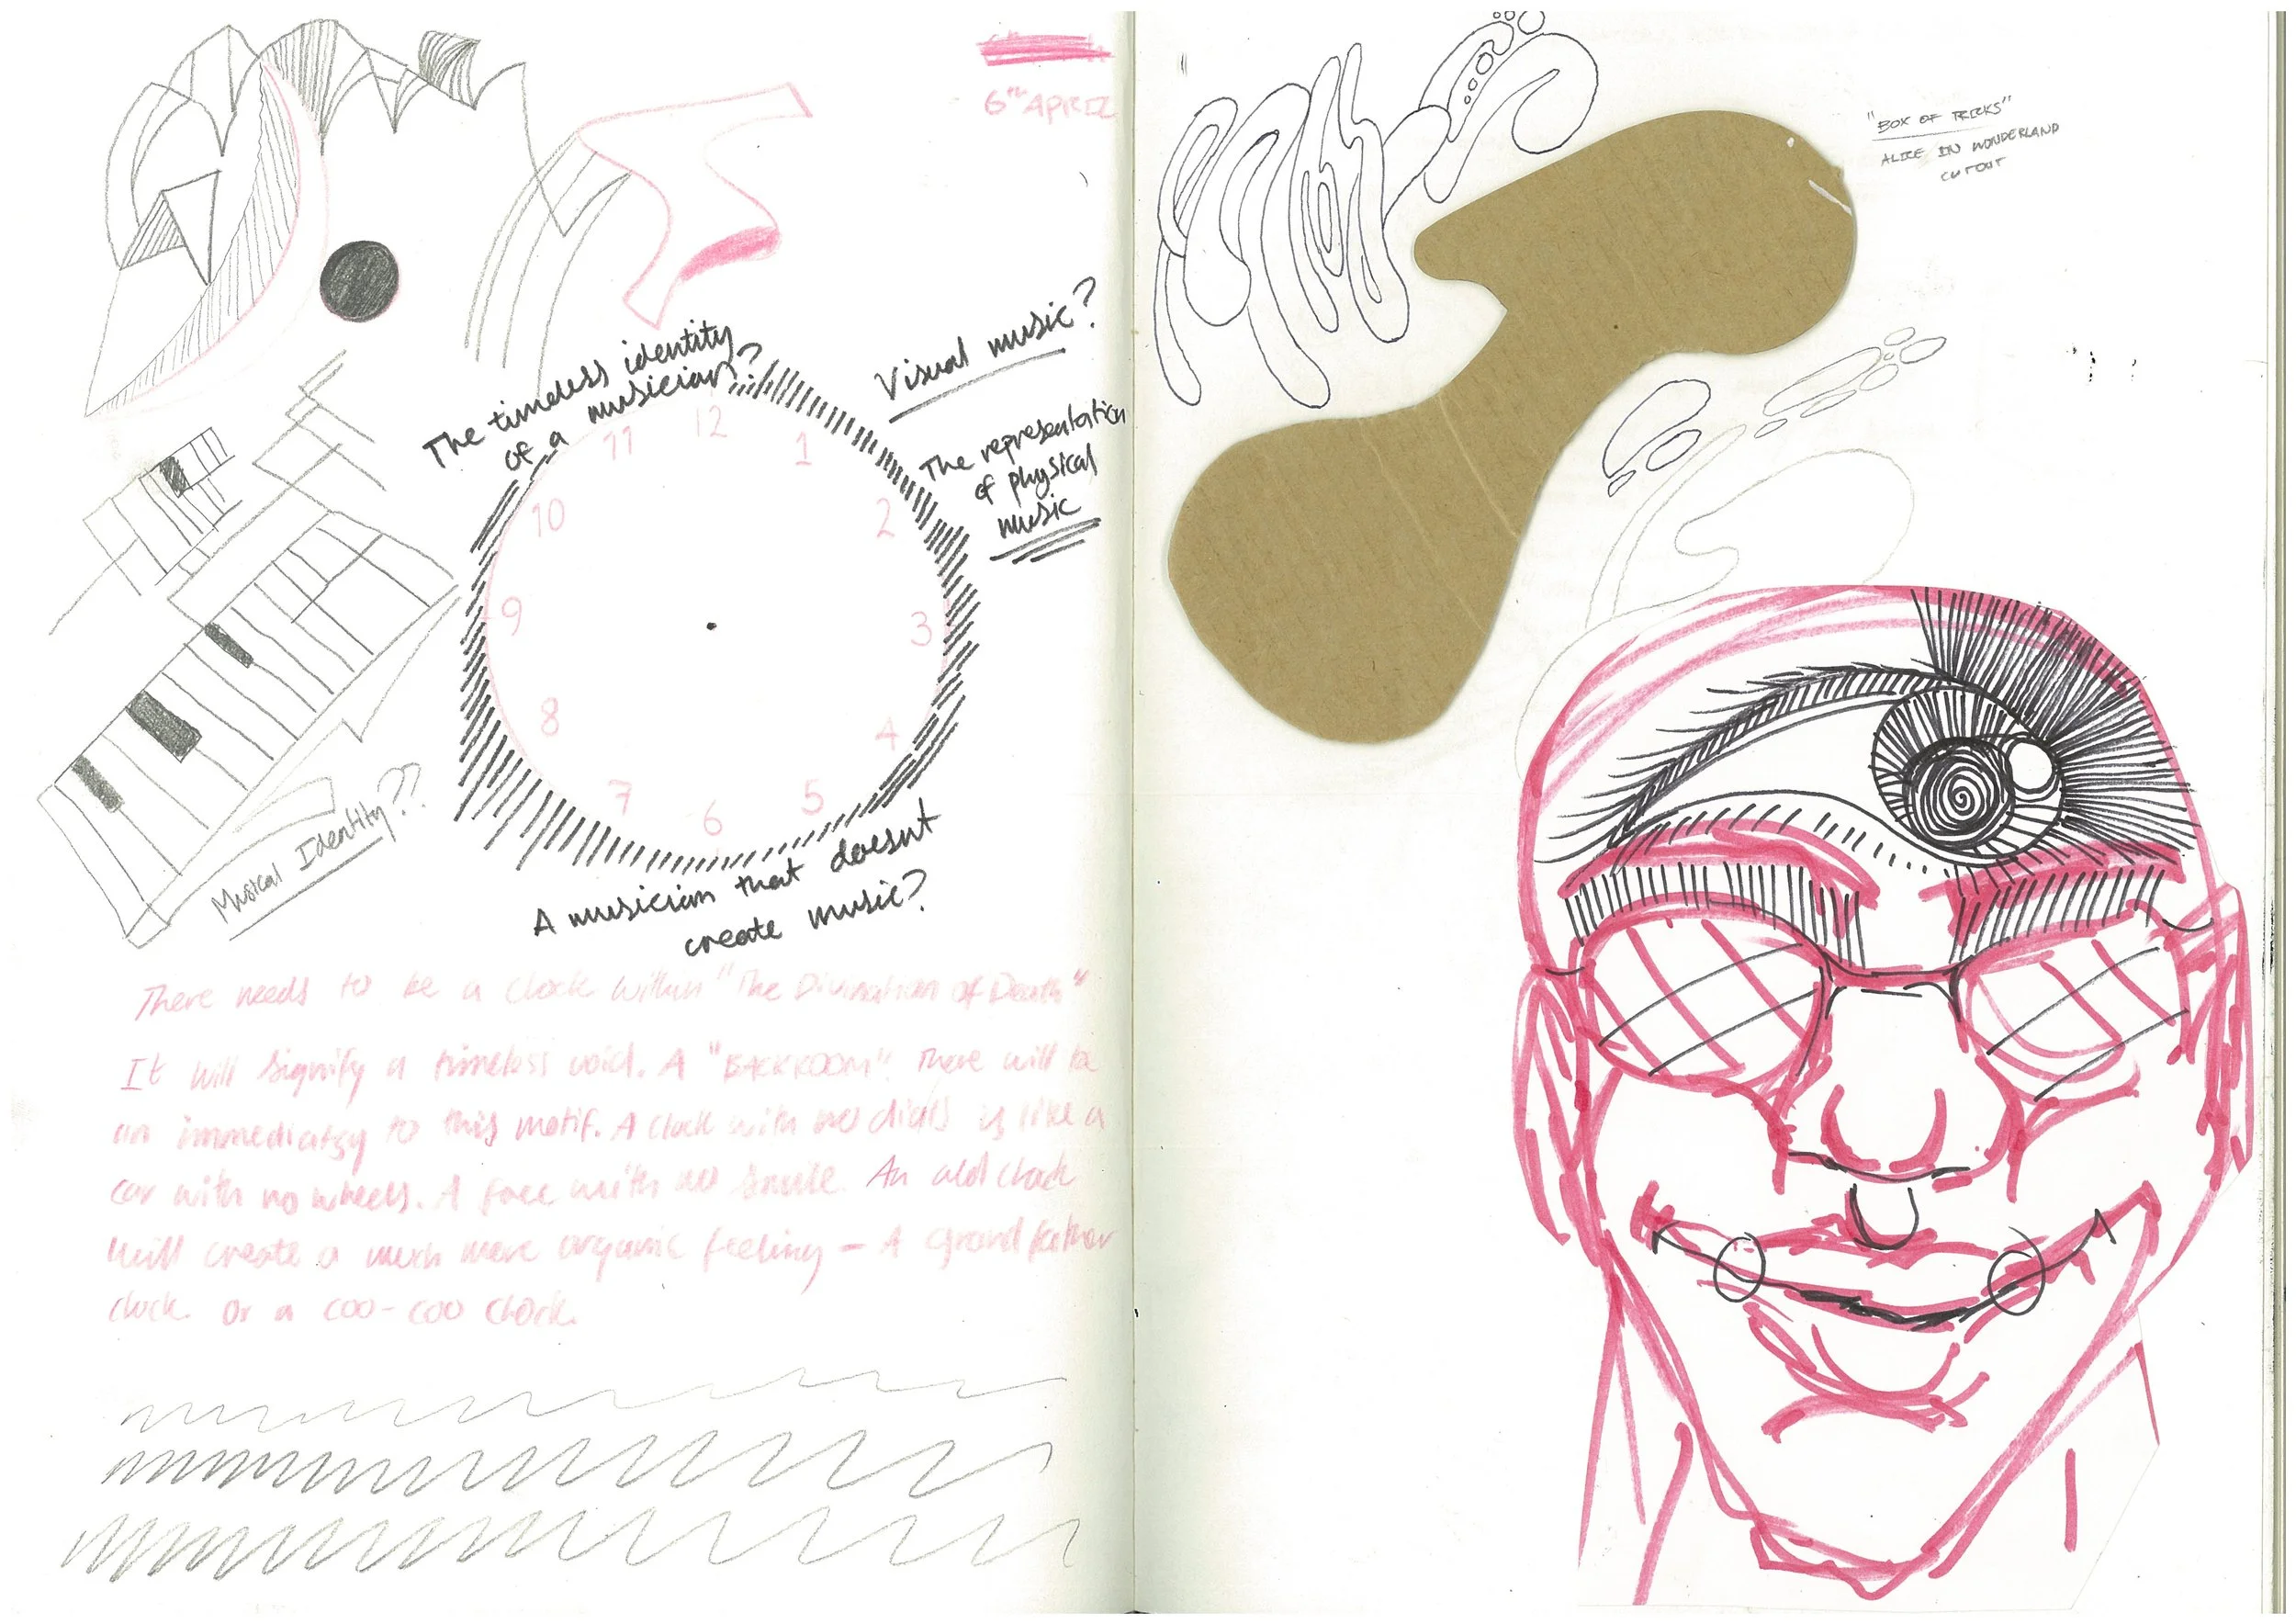 6TH APRIL
The timeless identity
of a musician?
Visual music?
The representation
of physical
music
12
1
2
3
4
5
6
7
8
9
10
11
Musical Identity??
A musician that doesnt
create music?
There needs to be a clock within "The Divination of Death"
It will signify a timeless void. A "BACKROOM". There will be
an immediatsy to this motif. A clock with no dials is like a
car with no wheels. A face with no smile. An old clock
will create a much more organic feeling – A grandfather
clock or a coo-coo clock.
"BOX OF TRICKS"
ALICE IN WONDERLAND
CUTOUT